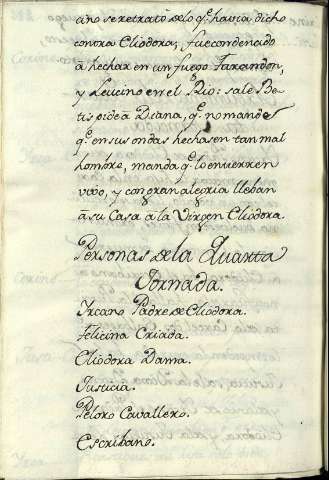 cino se retrató de lo q.e havia dicho
contra Eliodora, fue condenado
á hechar en un fuego Farandon,
y Leucino en el Rio: sale Be-
tis pide á Diana, q.e no mande
q.e en sus ondas hechasen tan mal
hombre, manda q.e lo entierren
vivo, y con gran alegria lleban
á su Casa á la Virgen Eliodora.
Personas de la Quarta
Jornada.
Ircano Padre de Eliodora.
Felicina Criada.
Eliodora Dama.
Justicia.
Peloro Cavallero.
Escribano.